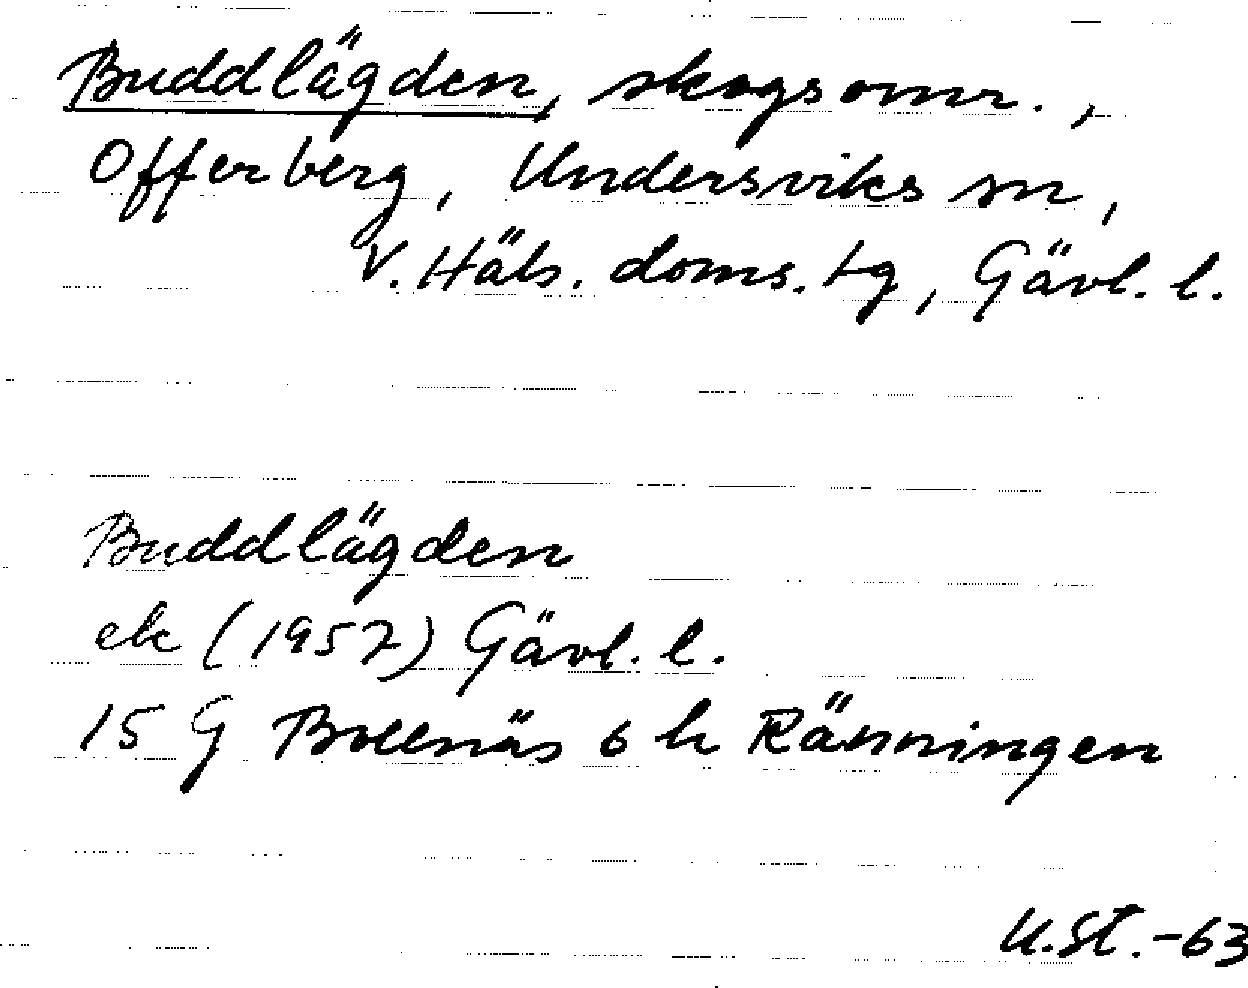 Buddlägden, skogsomr.,
Offerberg, Undersviks sn,
V. Häls. doms. tg, Gävl. l.
Buddlägden
ek (1957) Gävl. l.
15 G Bollnäs 6 h Ränningen
U.St.-63